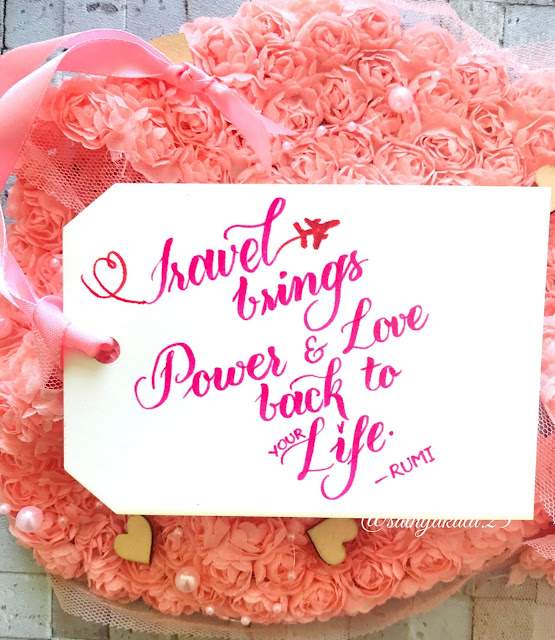 Travel
brings
Power & Love
back to
YOUR Life.
-RUMI